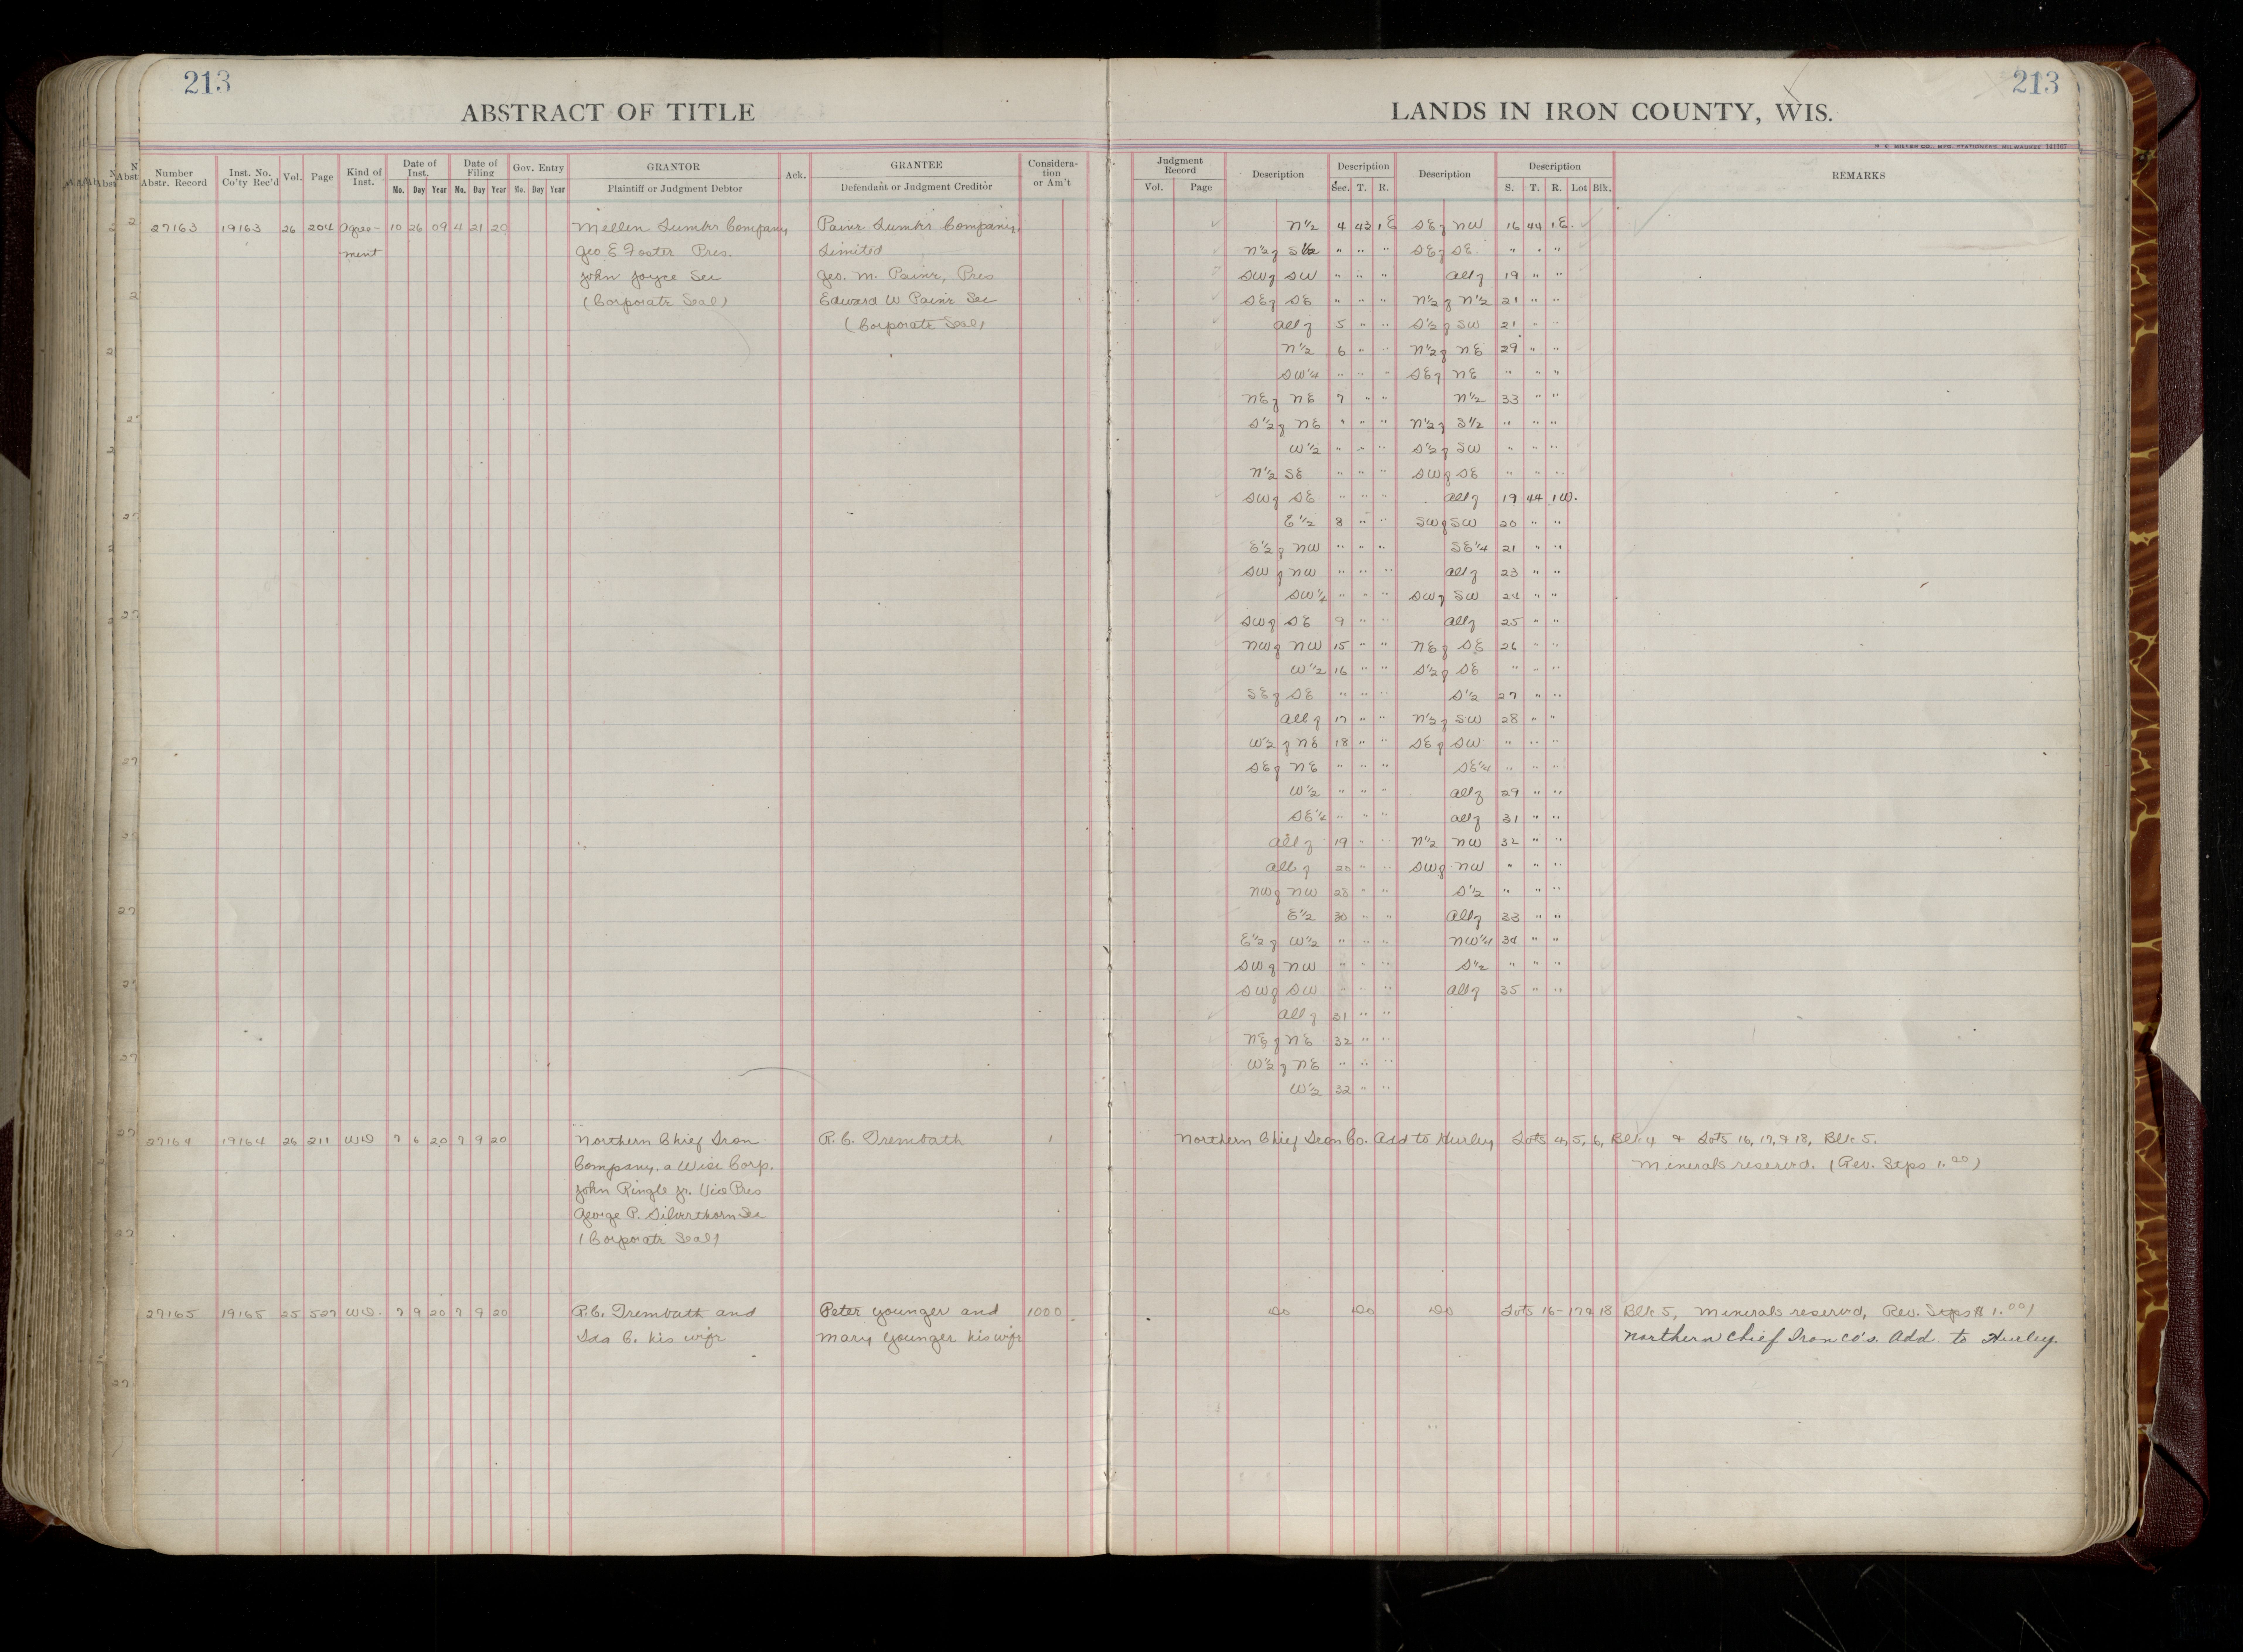 213
213
ABSTRACT OF TITLE
LANDS IN IRON COUNTY, WIS.
Number Abstr. Record Inst. No. Co'ty Rec'd Vol. Page Kind of Inst. Date of Inst. Mo. Day Year Date of Filing Mo. Day Year Gov. Entry Mo. Day Year GRANTOR Plaintiff or Judgment Debtor Ack. GRANTEE Defendant or Judgment Creditor Considera-tion or Am't
Judgment Record Vol. Page Description Description Sec. T. R. Description Description S. T. R. Lot Blk. REMARKS
27163 19163 26 204 Agree- 10 26 09 4 21 20 Mellen Lumber Company Paine Lumber Company, N½ 4 43 1 E SE of NW 16 44 1 E.
ment Geo E Foster Pres. Limited N½ of S½ " " " SE of SE " " "
John Joyce Sec Geo. M. Paine, Pres SW of SW " " " All of 19 " "
(Corporate Seal) Edward W Paine Sec SE of SE " " " N½ of N½ 21 " "
(Corporate Seal) All of 5 " " S½ of SW 21 " "
N½ 6 " " N½ of NE 29 " "
SW¼ " " " SE of NE " " "
NE of NE 7 " " N½ 33 " "
S½ of NE " " " N½ of S½ " " "
W½ " " " S½ of SW " " "
N½ SE " " " SW of SE " " "
SW of SE " " " All of 19 44 1 W.
E½ 8 " " SW of SW 20 " "
E½ of NW " " " SE¼ 21 " "
SW of NW " " " All of 23 " "
SW¼ " " " SW of SW 24 " "
SW of SE 9 " " All of 25 " "
NW of NW 15 " " NE of SE 26 " "
W½ 16 " " S½ of SE " " "
SE of SE " " " S½ 27 " "
All of 17 " " N½ of SW 28 " "
W½ of NE 18 " " SE of SW " " "
SE of NE " " " SE¼ " " "
W½ " " " All of 29 " "
SE¼ " " " All of 31 " "
All of 19 " " N½ NW 32 " "
All of 20 " " SW of NW " " "
NW of NW 28 " " S½ " " "
E½ 30 " " All of 33 " "
E½ of W½ " " " NW¼ 34 " "
SW of NW " " " S½ " " "
SW of SW " " " All of 35 " "
All of 31 " "
NE of NE 32 " "
W½ of NE " " "
W½ 32 " "
27164 19164 26 211 WD 7 6 20 7 9 20 Northern Chief Iron R. C. Trembath 1 Northern Chief Iron Co. Add to Hurley Lots 4, 5, 6, Blk 4 & Lots 16, 17, & 18, Blk 5.
Company, a Wisc Corp. Minerals reserved. (Rev. Stps 1.00)
John Ringle Jr. Vice Pres
George P. Silverthorn Sec
(Corporate Seal)
27165 19165 25 527 WD. 7 9 20 7 9 20 R.C. Trembath and Peter Younger and 1000 Do Do Do Lots 16-17 & 18 Blk 5, Minerals reserved, Rev. Stps $1.00)
Ida C. his wife Mary Younger his wife Northern Chief Iron Co's. Add. to Hurley.